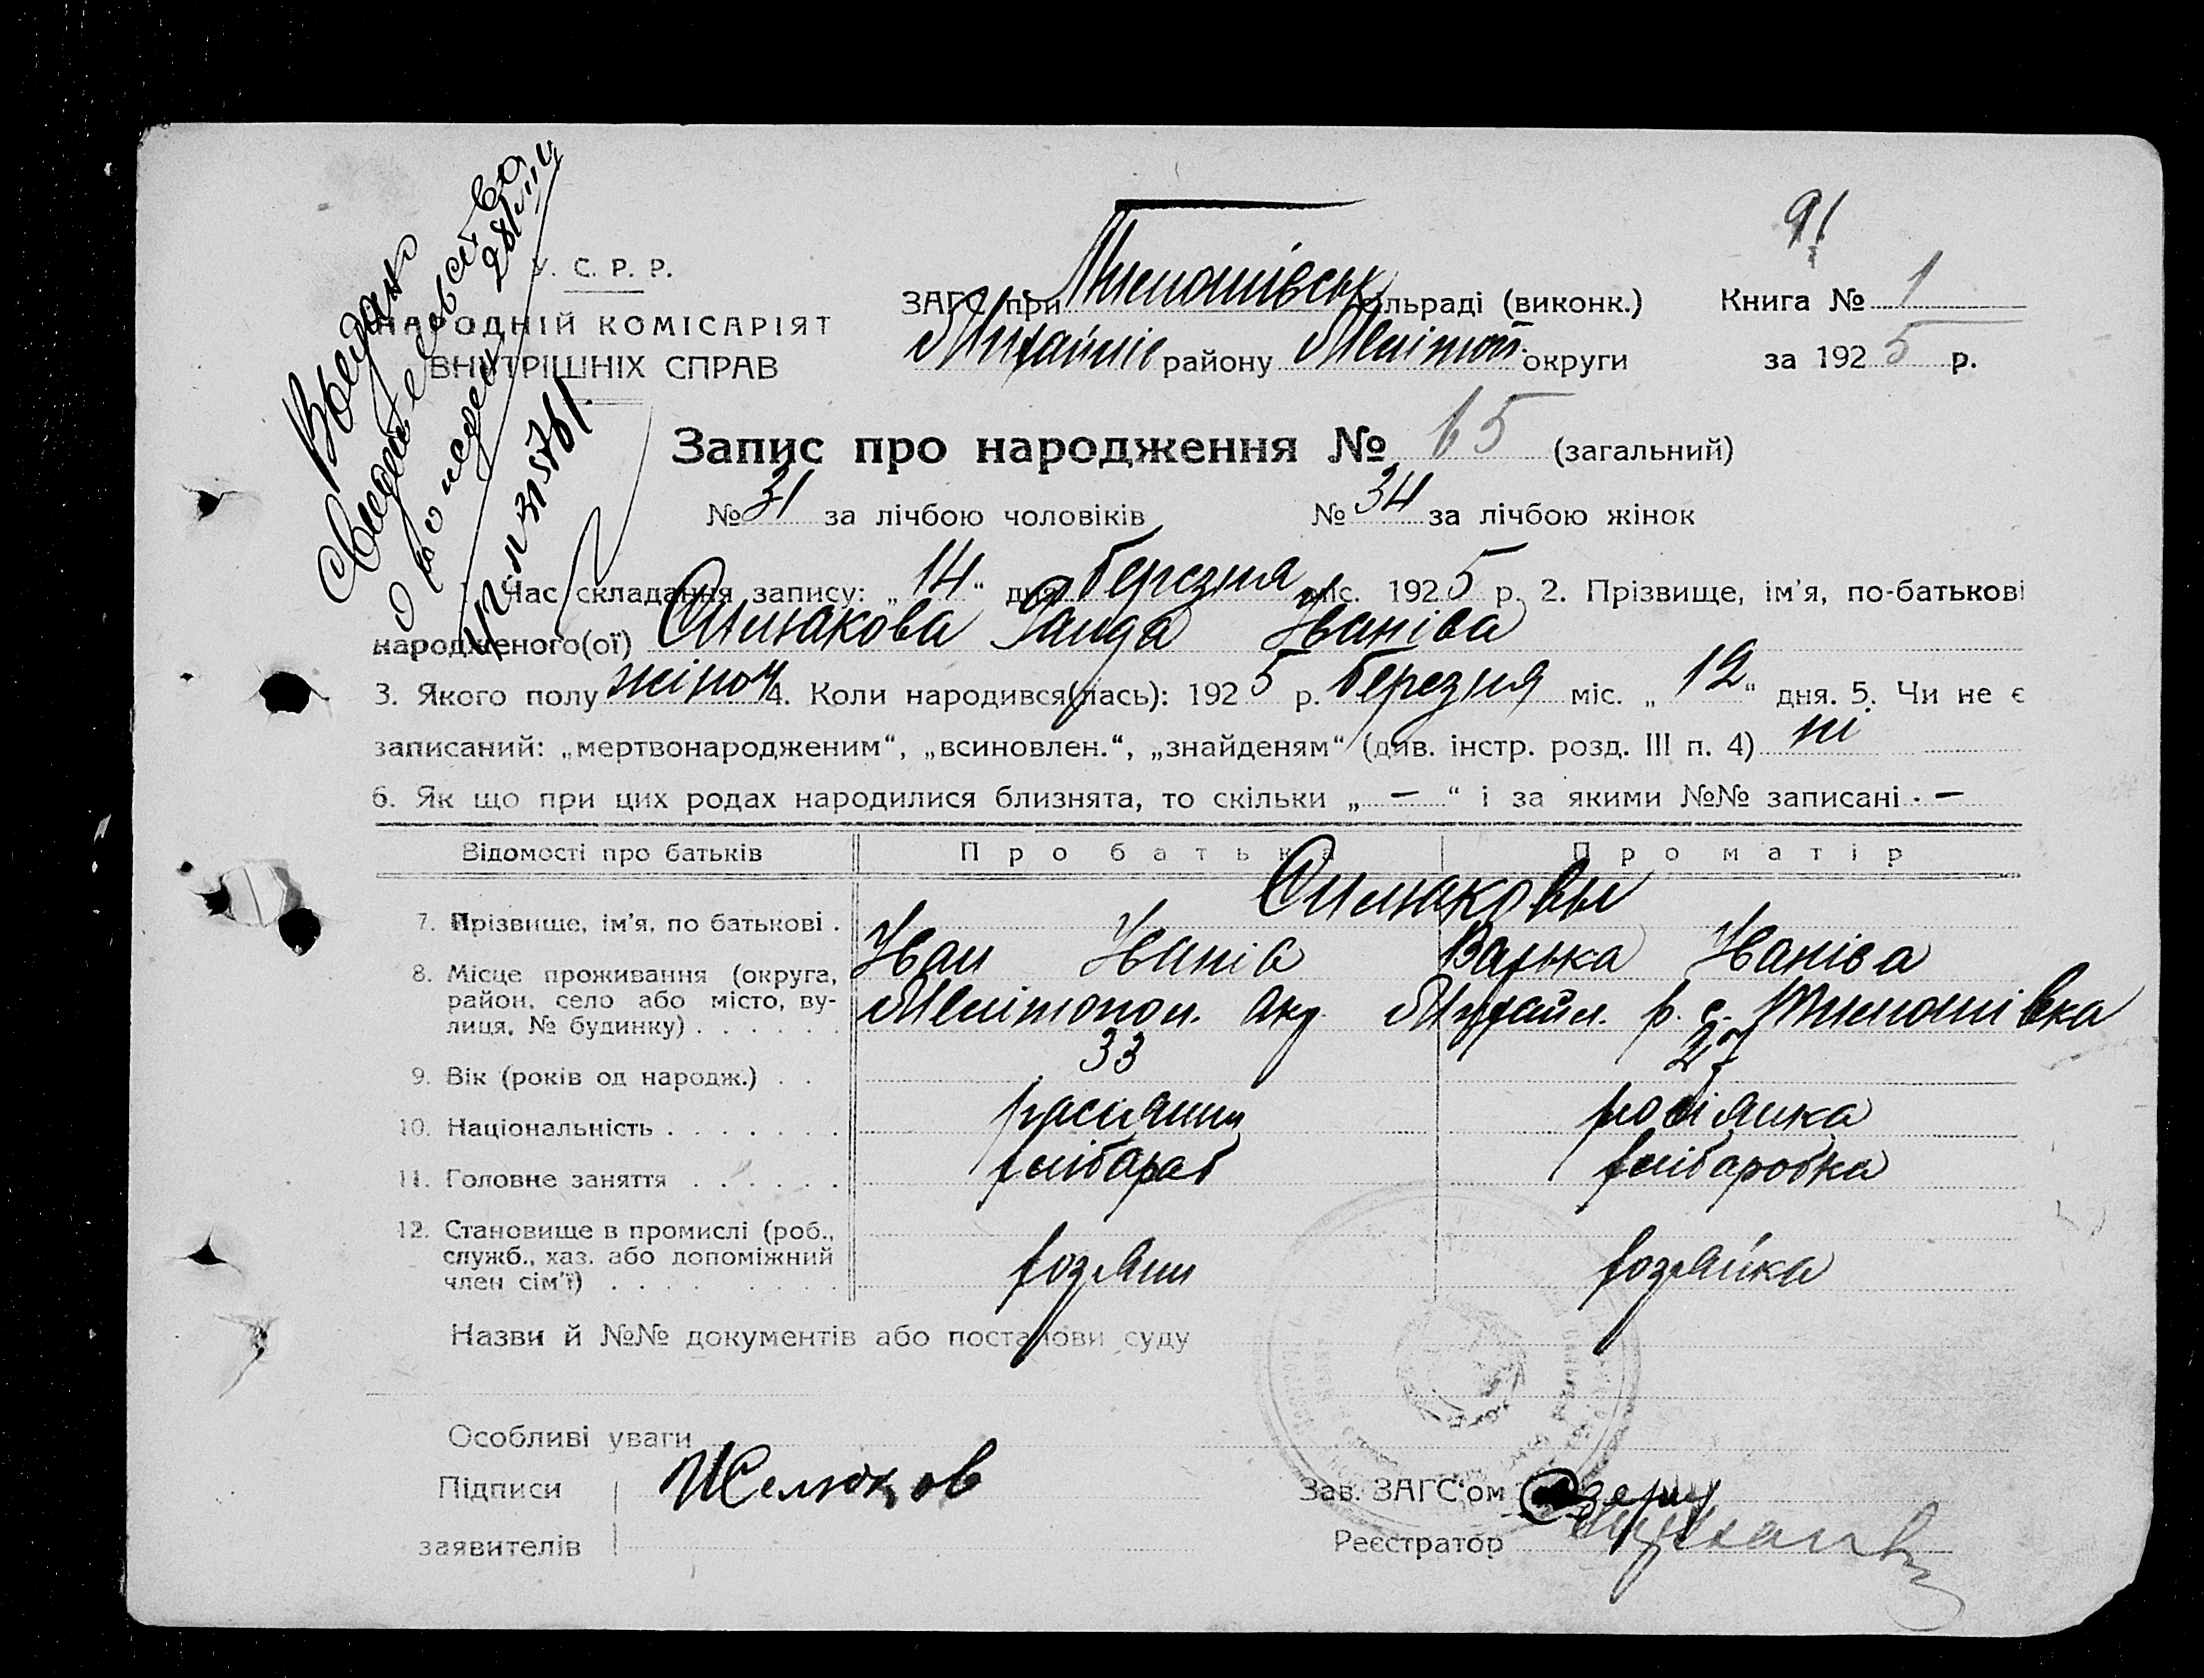 91
У. С. Р. Р.
НАРОДНІЙ КОМІСАРІЯТ
ВНУТРІШНІХ СПРАВ
Выдано
Свидетельство
о рождении
28/III
ЗАГС при Тимошівськ сільраді (виконк.)
Михайлів району Меліто округи
Книга № 1
за 1925 р.
Запис про народження № 65 (загальний)
№ 31 за лічбою чоловіків № 34 за лічбою жінок
Час складання запису: „14“ дня березня міс. 1925 р. 2. Прізвище, ім'я, по-батькові
народженого(ої) Симакова Іваніва
3. Якого полу жіноч 4. Коли народився(лась): 1925 р. березня міс. „12“ дня. 5. Чи не є
записаний: „мертвонародженим“, „всиновлен.“, „знайденям“ (див. інстр. розд. III п. 4) ні
6. Як що при цих родах народилися близнята, то скільки „ — “ і за якими №№ записані . —
Відомості про батьків Про батька Про матір
Симаковы
7. Прізвище, ім'я, по батькові . Іван Іванів Іваніва
8. Місце проживання (округа, район, село або місто, вулиця, № будинку) . . . . . . Мелітопол. окр. Михайл. р. с. Тимошівка
9. Вік (років од народж.) . . 33 27
10. Національність . . . . . . . росіянин росіянка
11. Головне заняття . . . . . . хлібороб хліборобка
12. Становище в промислі (роб., служб., хаз. або допоміжний член сім'ї) . . . . . . . . хозяин хозяйка
Назви й №№ документів або постанови суду
Особливі уваги
Підписи
заявителів
Зав. ЗАГС'ом
Реєстратор